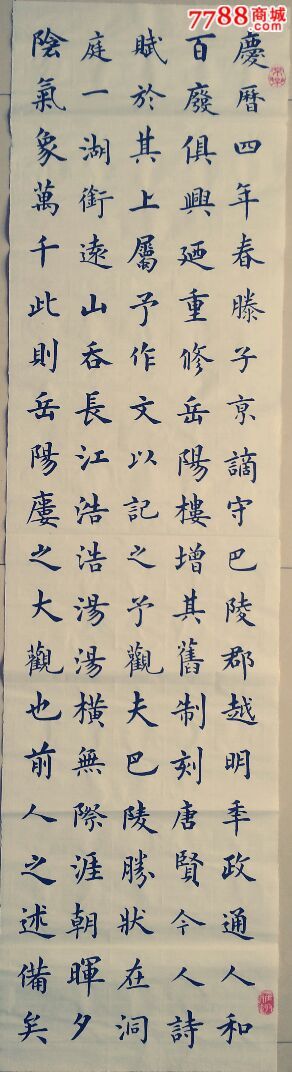 7788商城
.com
慶曆四年春滕子亰謫守巴陵郡越明秊政通人和
百廢俱興廼重修岳陽樓增其舊制刻唐賢今人詩
賦於其上屬予作文以記之予觀夫巴陵勝狀在洞
庭一湖銜遠山吞長江浩浩湯湯橫無際涯朝暉夕
陰氣象萬千此則岳陽廔之大觀也前人之述備矣